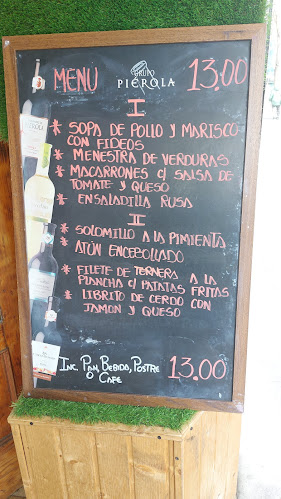 MENU GRUPO PIÉROLA 13.00
I
* SOPA DE POLLO Y MARISCO
CON FIDEOS
* MENESTRA DE VERDURAS
* MACARRONES C/ SALSA DE
TOMATE Y QUESO
* ENSALADILLA RUSA
II
* SOLOMILLO A LA PIMIENTA
* ATÚN ENCEBOLLADO
* FILETE DE TERNERA A LA
PLANCHA C/ PATATAS FRITAS
* LIBRITO DE CERDO CON
JAMON Y QUESO
INC. PAN, BEBIDA, POSTRE 13.00
O CAFE